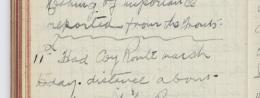 nothing of importance
reported from the Fronts.
11th Had Coy Route march
today. distance about